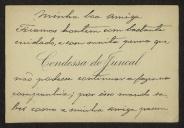 Minha boa amiga
Ficamos hontem com bastante
cuidado, e com muita pena que
Condessa de Juncal
não podesse continuar a fazer-nos
companhia, por isso mando sa-
ber como a minha amiga passou